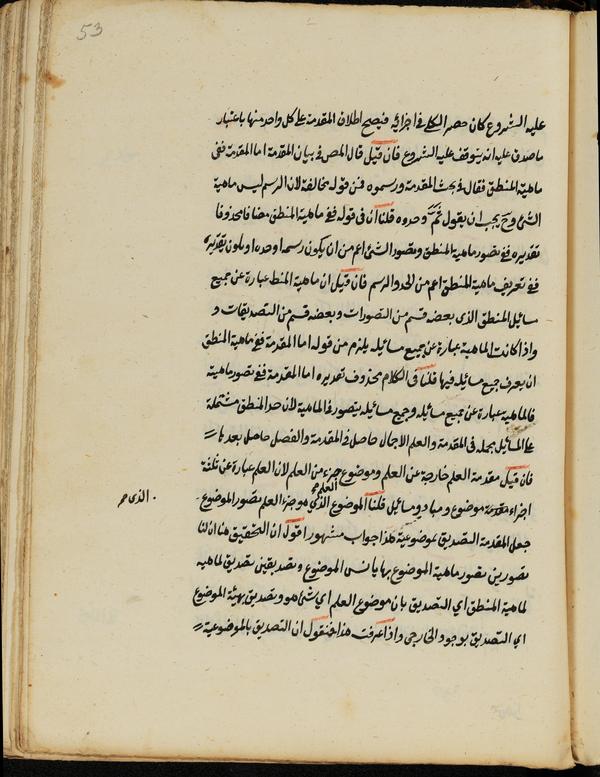 53
عليه الشروع كان حصر الكلي في اجزائه فيصح اطلاق المقدمة على كل واحد منها باعتبار
ما صدق عليه انه يتوقف عليه الشروع فان قيل قال المص في بيان المقدمة اما المقدمة ففي
ماهية المنطق فقال في بحث المقدمة ورسموه فمن قوله مخالفة لان الرسم ليس ماهية
الشئ وح يجب ان يقول ثمه وحدوه قلنا ان في قوله ففي ماهية المنطق مضافا محذوفا
تقديره ففي تصور ماهية المنطق وتصور الشئ اعم من ان يكون رسما وحده او يكون تقديره
ففي تعريف ماهية المنطق اعم من الحد والرسم فان قيل ان ماهية المنطق عبارة عن جميع
مسائل المنطق الذي بعضه قسم من التصورات وبعضه قسم من التصديقات و
واذا كانت الماهية عبارة عن جميع مسائله يلزم من قوله اما المقدمة ففي ماهية المنطق
ان يعرف جميع مسائله فيها قلنا في الكلام محذوف تقديره اما المقدمة ففي تصور ماهية
فالماهية عبارة عن جميع مسائله وجميع مسائله يتصور في الماهية لان حد المنطق مشتملة
على المسائل بجمله في المقدمة والعلم الاجمال حاصل في المقدمة والفصل حاصل بعدها
فان قيل مقدمة العلم خارجة عن العلم وموضوع جزء من العلم لان العلم عبارة عن ثلثة
اجزاء موضوع ومبادو مسائل قلنا الموضوع الذي هو جزء العلم تصور الموضوع
العلم
الذي هو
جعل المقدمة التصديق بموضوعية هذا جواب مشهور اقول ان التحقيق هنا ان لنا
تصورين تصور ماهية الموضوع بها الموضوع وتصديقين تصديق لماهية
لماهية المنطق اي التصديق بان موضوع العلم اي شئ هو وتصديق بهيئة الموضوع
اي التصديق بوجود الخارجي واذا عرفت هذا فنقول ان التصديق بالموضوعية